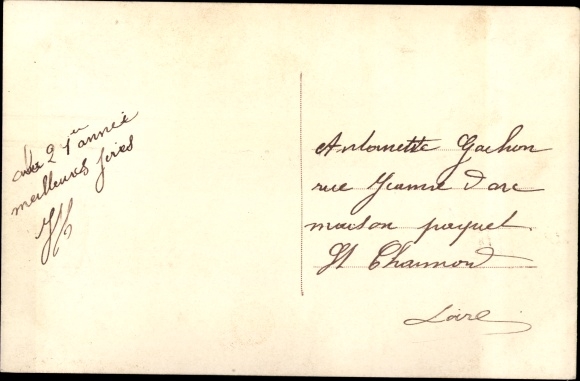 2 1er année
meilleures
Antoinette Gachon
rue Jeanne d'arc
maison paquet
St Chamond
Loire